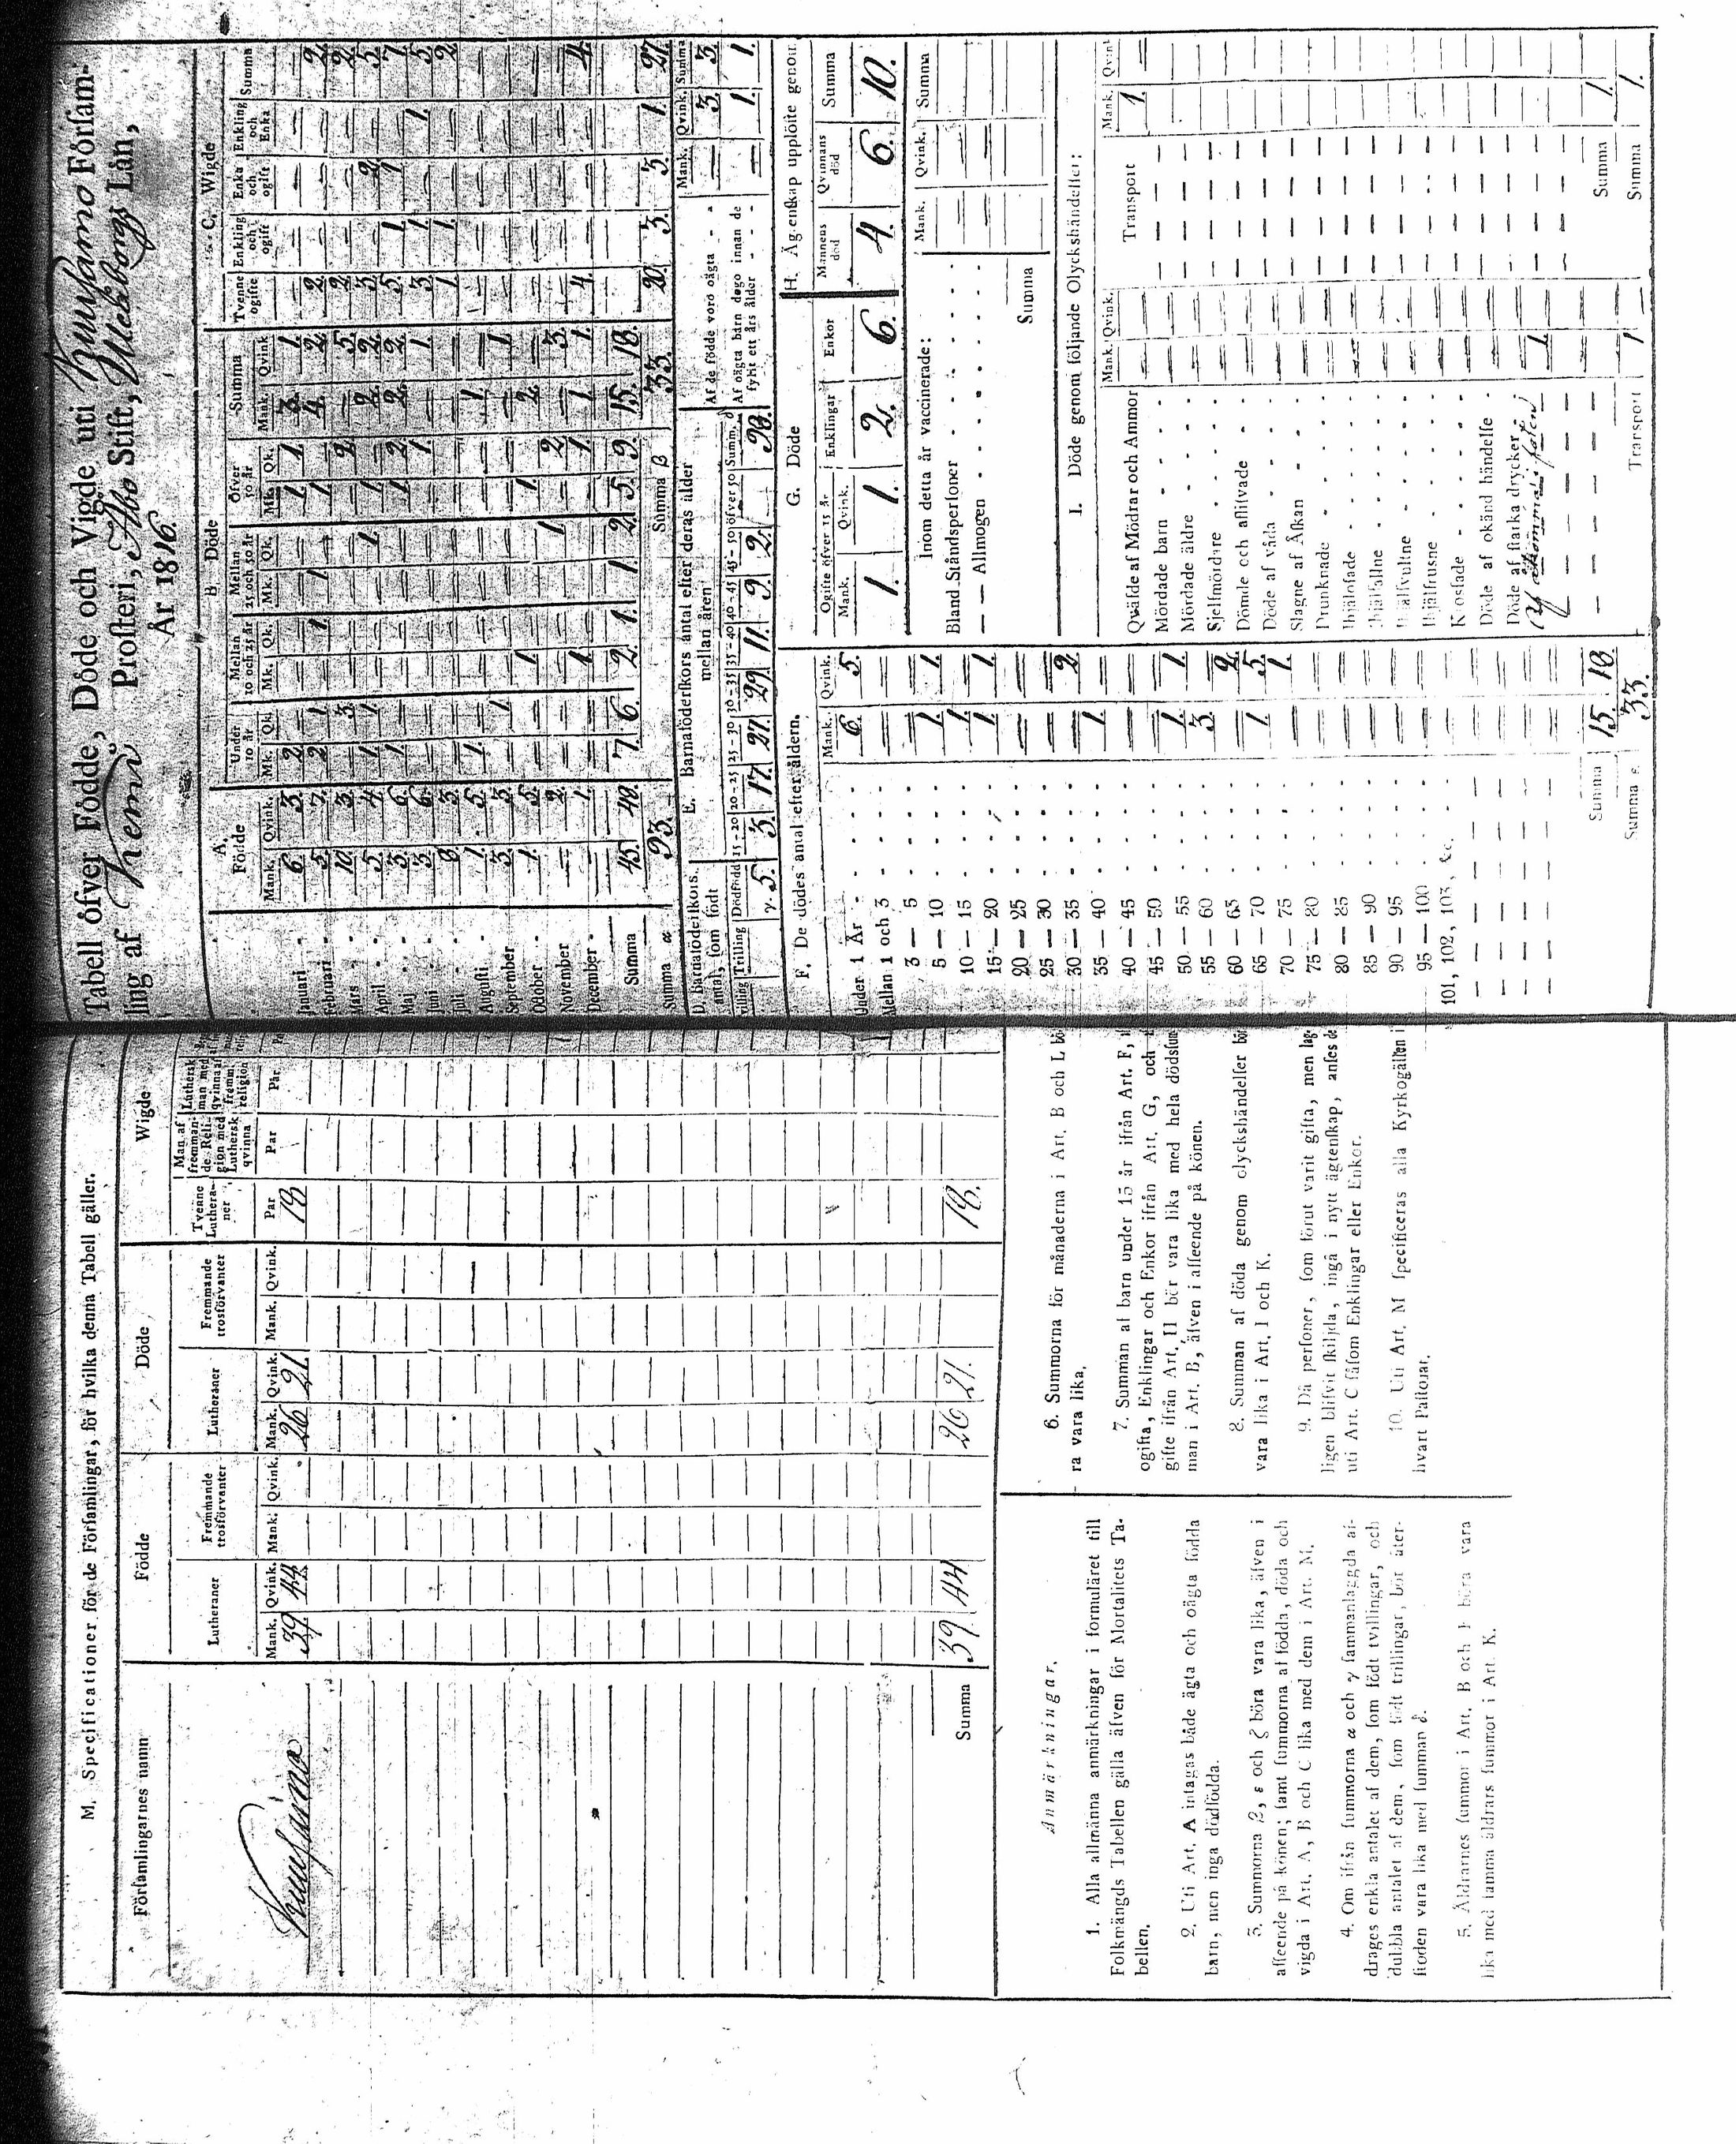 M. Specificationer för de Församlingar, för hvilka denna Tabell gäller.
Församlingarnes namn
Födde
Döde
Wigde
Lutheraner
Fremmande trosförvanter
Lutheraner
Fremmande trosförvanter
Tvenne Lutheraner
Man af fremmande Religion med Luthersk qvinna
Luthersk man med qvinna af fremm. religion
Mank. Qvink. Mank. Qvink. Mank. Qvink. Mank. Qvink. Par Par Par
Kuusamo 39 44 26 21 18
Summa 39 44 26 21. 18.
Anmärkningar.
1. Alla allmänna anmärkningar i formuläret till
Folkmängds Tabellen gälla äfven för Mortalitets Ta-
bellen.
2. Uti Art. A intagas både ägta och oägta födda
barn, men inga dödfödda.
3. Summorna β, ε och ζ böra vara lika, äfven i
afseende på könen; samt summorna af födda, döda och
vigda i Art. A, B och C lika med dem i Art. M.
4. Om ifrån summorna α och γ sammanlaggda af-
drages enkla antalet af dem, som födt tvillingar, och
dubbla antalet af dem, som födt trillingar, bör åter-
stoden vara lika med summan δ.
5. Åldrarnes summor i Art. B och F böra vara
lika med samma åldrars summor i Art. K.
6. Summorna för månaderna i Art. B och L bö-
ra vara lika.
7. Summan af barn under 15 år ifrån Art. F,
ogifta, Enklingar och Enkor ifrån Art. G, och
gifte ifrån Art. H bör vara lika med hela dödssum
man i Art. B, äfven i afseende på könen.
8. Summan af döda genom olyckshändelser bör
vara lika i Art. I och K.
9. Då personer, som förut varit gifta, men lag-
ligen blifvit skiljda, ingå i nytt ägtenskap, anses de
uti Art. C såsom Enklingar eller Enkor.
10. Uti Art. M specificeras alla Kyrkogällen i
hvart Pastorat.
Tabell öfver Födde, Döde och Vigde uti Kuusamo Församling
af Kemi Prosteri, Åbo Stift, Uleåborgs Län,
År 1816.
A. Födde
B Döde
C. Wigde
Under 10 år.
Mellan 10 och 25 år
Mellan 25 och 50 år
Öfver 50 år
Summa
Tvenne ogifte
Enkling och ogift
Enka och ogift
Enkling och Enka
Summa
Mank. Qvink. Mk. Qk. Mk. Qk. Mk. Qk. Mk. Qk. Mank. Qvink
Januari 6. 3. 2. 1. 1. 3. 1.
Februari 5. 7. 2. 1. 1. 1. 1. 4. 2. 2. 2.
Mars 10. 3. 3. 2. 5. 2. 2.
April 5. 4. 1. 1. 1. 1. 2. 2. 3. 2. 5.
Maj 3. 6. 1. 1. 2. 2. 2. 5. 1. 1. 7.
Juni 3. 6. 1. 1. 3. 1. 1. 5.
Juli 3. 1. 1. 2.
Augusti 1. 5. 1. 1.
September 3. 3. 1. 1.
October 1. 5. 1. 1. 2.
November 2. 1. 2. 3.
December 1. 1. 1. 1. 1. 4. 4.
Summa 45. 48. 7. 6. 2. 1. 1. 2. 5. 9. 15. 18. 20. 3. 3. 1. 27.
Summa α 93. Summa β 33.
D. Barnaföderskors antal, som födt
Trilling Dödfödd
γ. 5.
E. Barnaföderskors antal efter deras ålder
mellan åren
15-20 20-25 25-30 30-35 35-40 40-45 45-50 öfver 50 Summ. δ
3. 17. 27. 29. 11. 9. 2. 98.
Mank. Qvink. Summa
Af de födde voro oägta - - 3. 3.
Af oägta barn dogo innan de
fyllt ett års ålder - - - 1. 1.
F. De dödes antal efter åldern.
Mank. Qvink.
Under 1 År 6. 5.
Mellan 1 och 3
3 — 5 1. 1.
5 — 10 1.
10 — 15 1. 1.
15 — 20
20 — 25
25 — 30 2.
30 — 35 1.
35 — 40
40 — 45
45 — 50 1. 1.
50 — 55 3.
55 — 60 2.
60 — 65 1. 5.
65 — 70 1.
70 — 75
75 — 80
80 — 85
85 — 90
90 — 95
95 — 100
101, 102, 103, &c.
Summa 15. 18.
Summa ε. 33.
G. Döde
Ogifte öfver 15 år
Mank. Qvink. Enklingar Enkor
1. 1. 2. 6.
H. Ägtenskap upplöste genom
Mannens död Qvinnans död Summa
4. 6. 10.
Inom detta år vaccinerade:
Mank. Qvink. Summa
Bland Ståndspersoner
— — Allmogen
Summa
I. Döde genom följande Olyckshändelser:
Mank. Qvink. Mank. Qvink
Qwäfde af Mödrar och Ammor
Transport 1.
Mördade barn
Mördade äldre
Sjelfmördare
Dömde och aflifvade
Döde af våda
Slagne af Åskan
Drunknade
Ihjälosade
Ihjälfallne
Ihjälfrusne
Kosfade
Döde af okänd händelse
Döde af starka drycker
1.
Transport 1
Summa 1.
Summa 1.